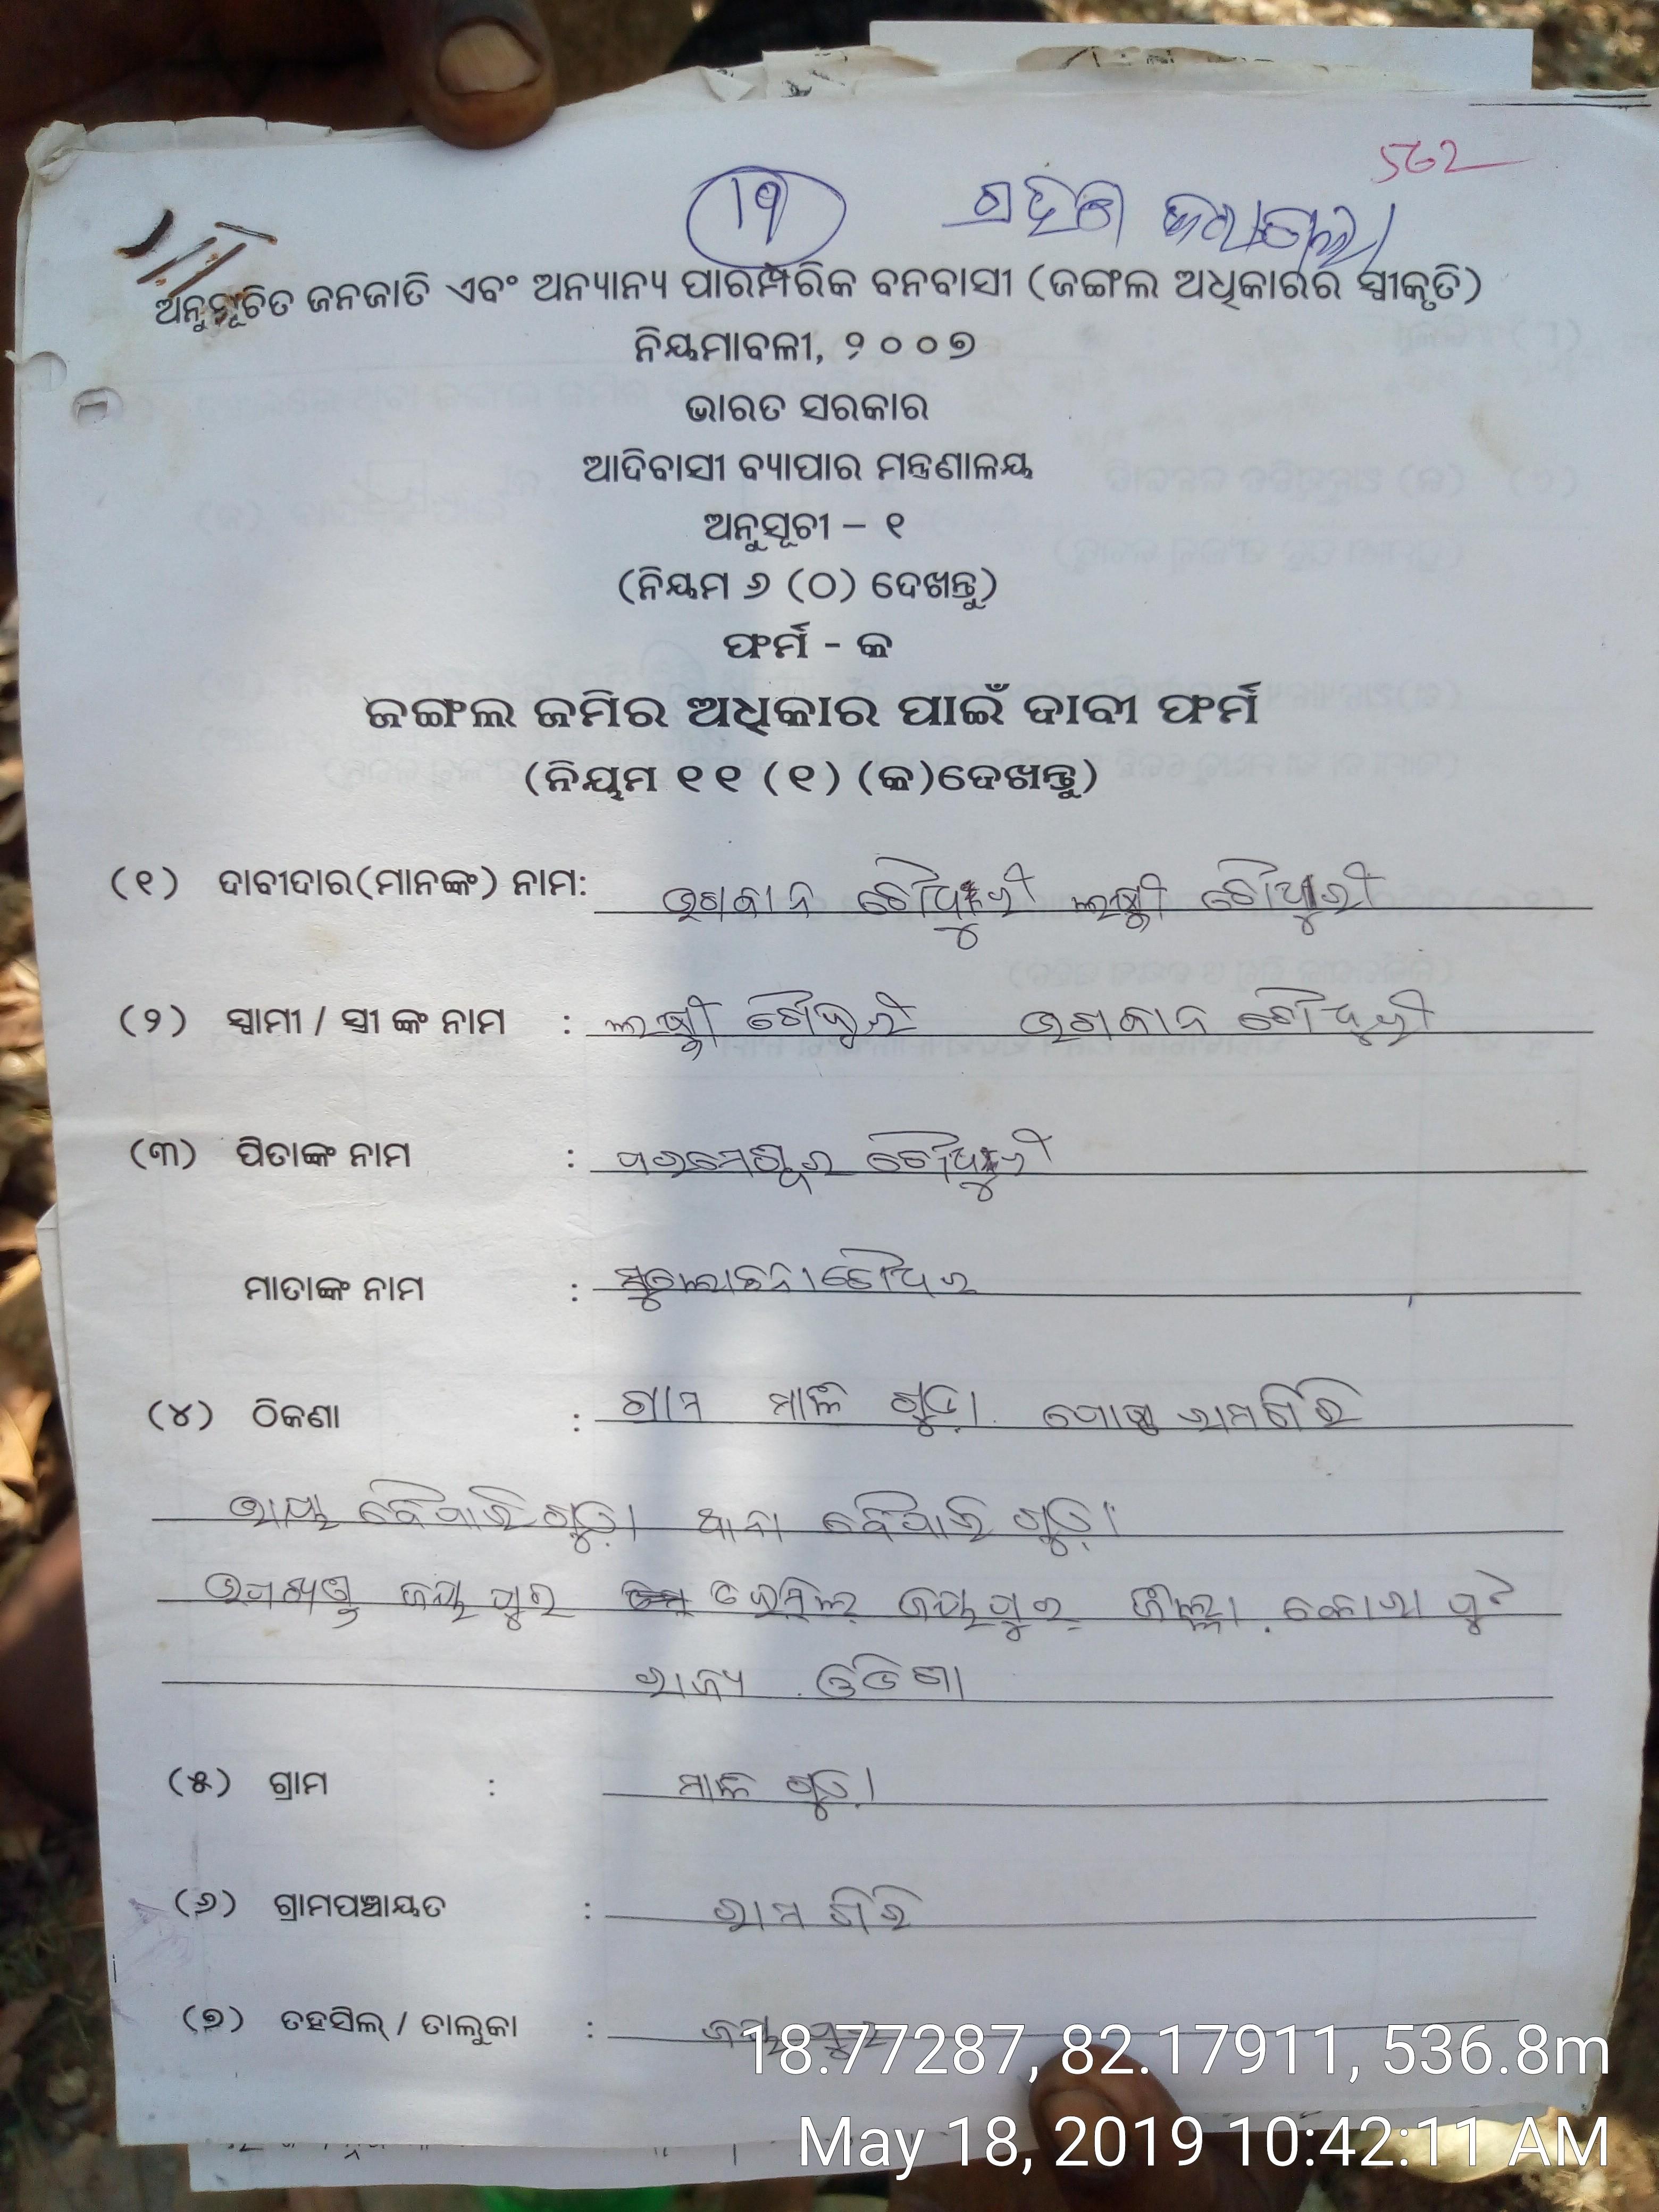 562
୧୩ ଗ୍ରହଣ କରାଗଲା
ଅନୁସୂଚିତ ଜନଜାତି ଏବଂ ଅନ୍ୟାନ୍ୟ ପାରମ୍ପରିକ ବନବାସୀ (ଜଙ୍ଗଲ ଅଧିକାରର ସ୍ୱୀକୃତି)
ନିୟମାବଳୀ, ୨୦୦୭
ଭାରତ ସରକାର
ଆଦିବାସୀ ବ୍ୟାପାର ମନ୍ତ୍ରଣାଳୟ
ଅନୁସୂଚୀ – ୧
(ନିୟମ ୬ (ଠ) ଦେଖନ୍ତୁ)
ଫର୍ମ - କ
ଜଙ୍ଗଲ ଜମିର ଅଧିକାର ପାଇଁ ଦାବୀ ଫର୍ମ
(ନିୟମ ୧୧ (୧) (କ)ଦେଖନ୍ତୁ)
(୧) ଦାବୀଦାର(ମାନଙ୍କ) ନାମ: ଭଗବାନ ଚୌଧୁରୀ ଲକ୍ଷ୍ମୀ ଚୌଧୁରୀ
(୨) ସ୍ୱାମୀ / ସ୍ତ୍ରୀ ଙ୍କ ନାମ : ଲକ୍ଷ୍ମୀ ଚୌଧୁରୀ ଭଗବାନ ଚୌଧୁରୀ
(୩) ପିତାଙ୍କ ନାମ : ପରମେଶ୍ୱର ଚୌଧୁରୀ
ମାତାଙ୍କ ନାମ :
(୪) ଠିକଣା : ଗାମ ମାଳି ଗୁଡ଼ା ପୋଷ୍ଟ ରାମଗିରି
ଭାୟା ବୈପାରିଗୁଡ଼ା ଥାନା ବୈପାରି ଗୁଡ଼ା
ଜୟପୁର ଜୟପୁର ଜୀଲ୍ଲା କୋରାପୁଟ
ରାଜ୍ୟ ଓଡିଶା
(୫) ଗ୍ରାମ : ମାଳି ଗୁଡ଼ା
(୬) ଗ୍ରାମପଞ୍ଚାୟତ : ରାମ ଗିରି
(୭) ତହସିଲ୍ / ତାଲୁକା : ଜୟପୁର
18.77287, 82.17911, 536.8m
May 18, 2019 10:42:11 AM